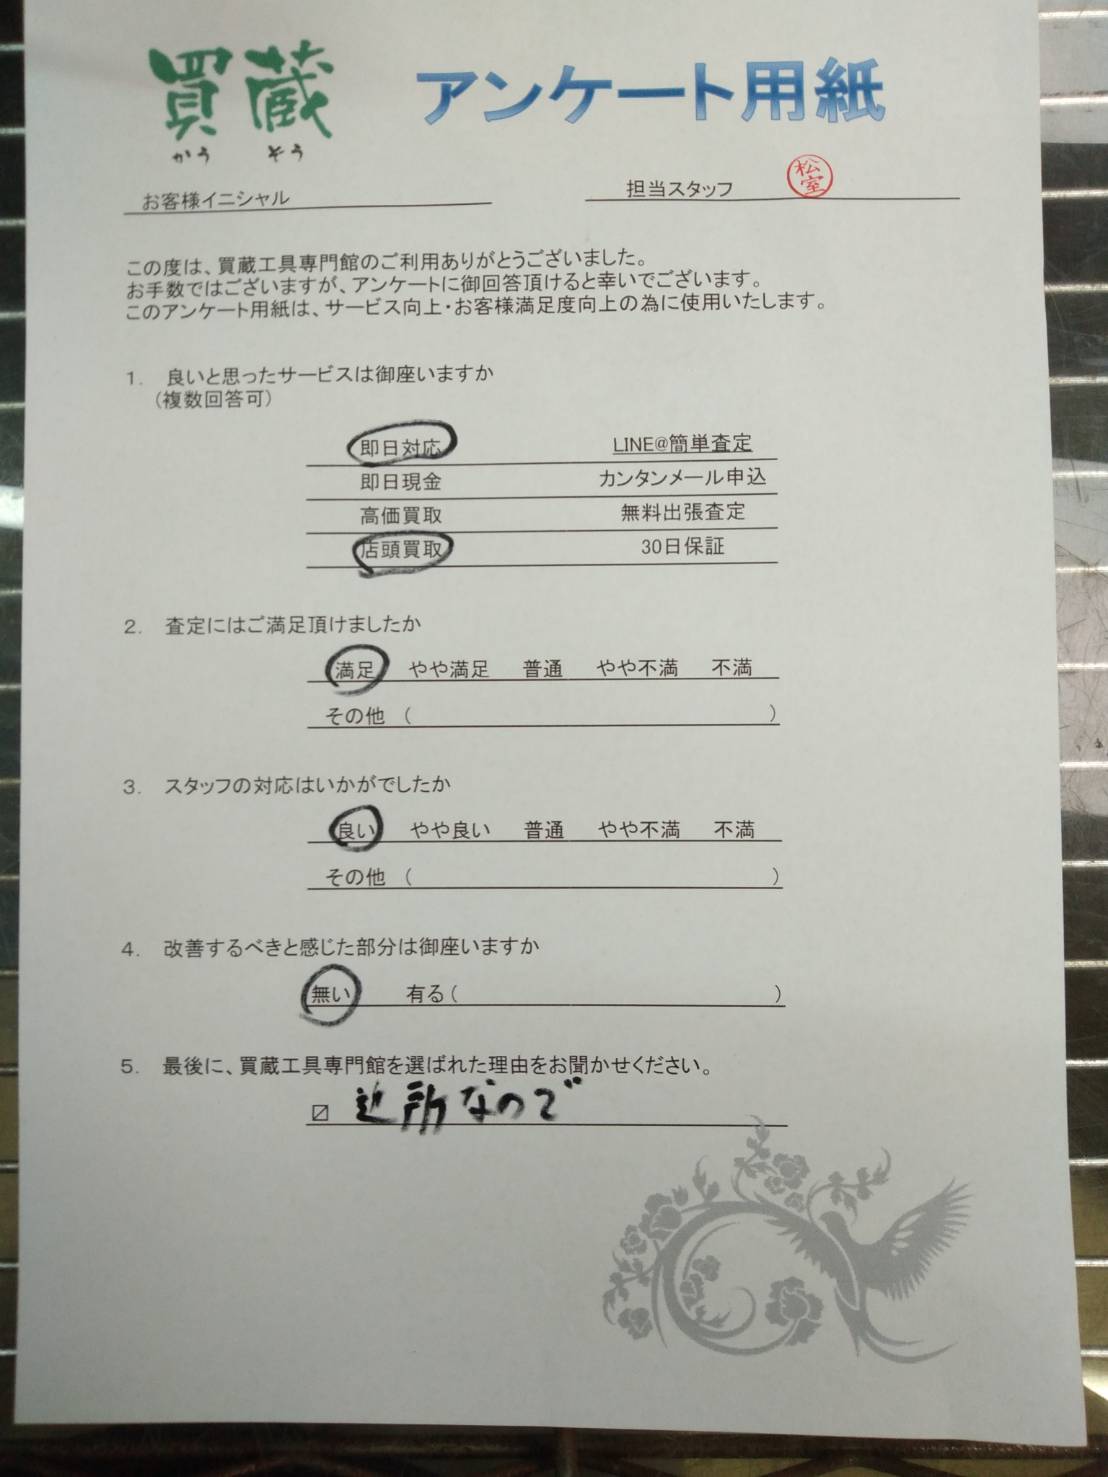 買蔵 アンケート用紙
かう そう
お客様イニシャル 担当スタッフ 松室
この度は、買蔵工具専門館のご利用ありがとうございました。
お手数ではございますが、アンケートに御回答頂けると幸いでございます。
このアンケート用紙は、サービス向上・お客様満足度向上の為に使用いたします。
1. 良いと思ったサービスは御座いますか
(複数回答可)
即日対応 LINE@簡単査定
即日現金 カンタンメール申込
高価買取 無料出張査定
店頭買取 30日保証
2. 査定にはご満足頂けましたか
満足 やや満足 普通 やや不満 不満
その他 ( )
3. スタッフの対応はいかがでしたか
良い やや良い 普通 やや不満 不満
その他 ( )
4. 改善するべきと感じた部分は御座いますか
無い 有る( )
5. 最後に、買蔵工具専門館を選ばれた理由をお聞かせください。
〼 近所なので